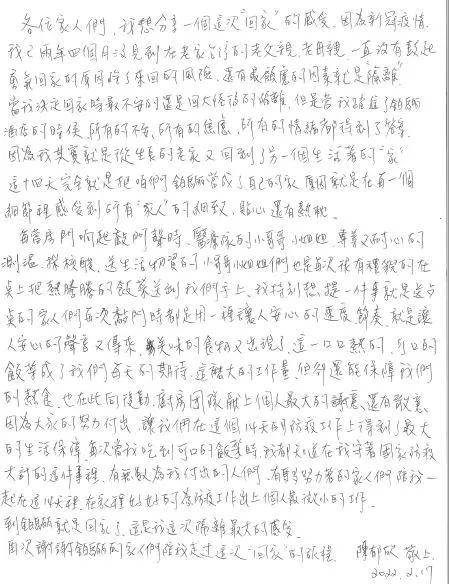 各位家人們，我想分享一個這次"回家"的感受，因為新冠疫情
我已兩年四個月沒見到在老家台灣的老父親、老母親，一直沒有鼓起
勇氣回家的原因除了來回的風險，還有最頭痛的因素就是"隔離"
當我決定回家時最不安的還是回大陸後的隔離，但是當我踏進了鉑麗
酒店的時候，所有的不安，所有的焦慮，所有的情緒都得到了答案
因為我其實就是從生長的老家又回到了另一個生活著的"家"
這十四天完全就是把咱們鉑麗當成了自己的家，原因就是在每一個
細節裡感受到所有"家人"的細致、貼心還有熱忱。
每當房門响起敲門聲時，醫療隊的小哥哥小姐姐，專業又耐心的
測溫、做核酸，送生活物資的小哥哥小姐姐們也是每次很有禮貌的在
桌上把熱騰騰的飯菜送到我們手上，我特別想提一件事就是送
的家人們每次敲門時都是用一種讓人安心的速度節奏，就是讓
人安心的聲音又傳來，美味的食物又出現了，這一口口熱的，可口的
飯菜成了我們每天的期待，這麼大的工作量，但卻還能保障我們
的熱食，也在此向後勤、廚房團隊獻上個人最大的謝意、還有敬意，
因為大家的努力付出，讓我們在這個14天的防疫工作上得到了最大
的生活保障，每次當我吃到可口的飯菜時，我都知道在我守著國家防疫
大計的這件事裡，有無數為我付出的人們，有默默努力著的家人們陪我一
起在這14天裡，在家裡好好的為防疫工作出上個人最微小的工作。
到鉑麗就是回家了，這是我這次隔離最大的感受，
再次謝謝鉑麗的家人們陪我走過這次"回家"的旅程 陳郁 敬上
2022.2.17